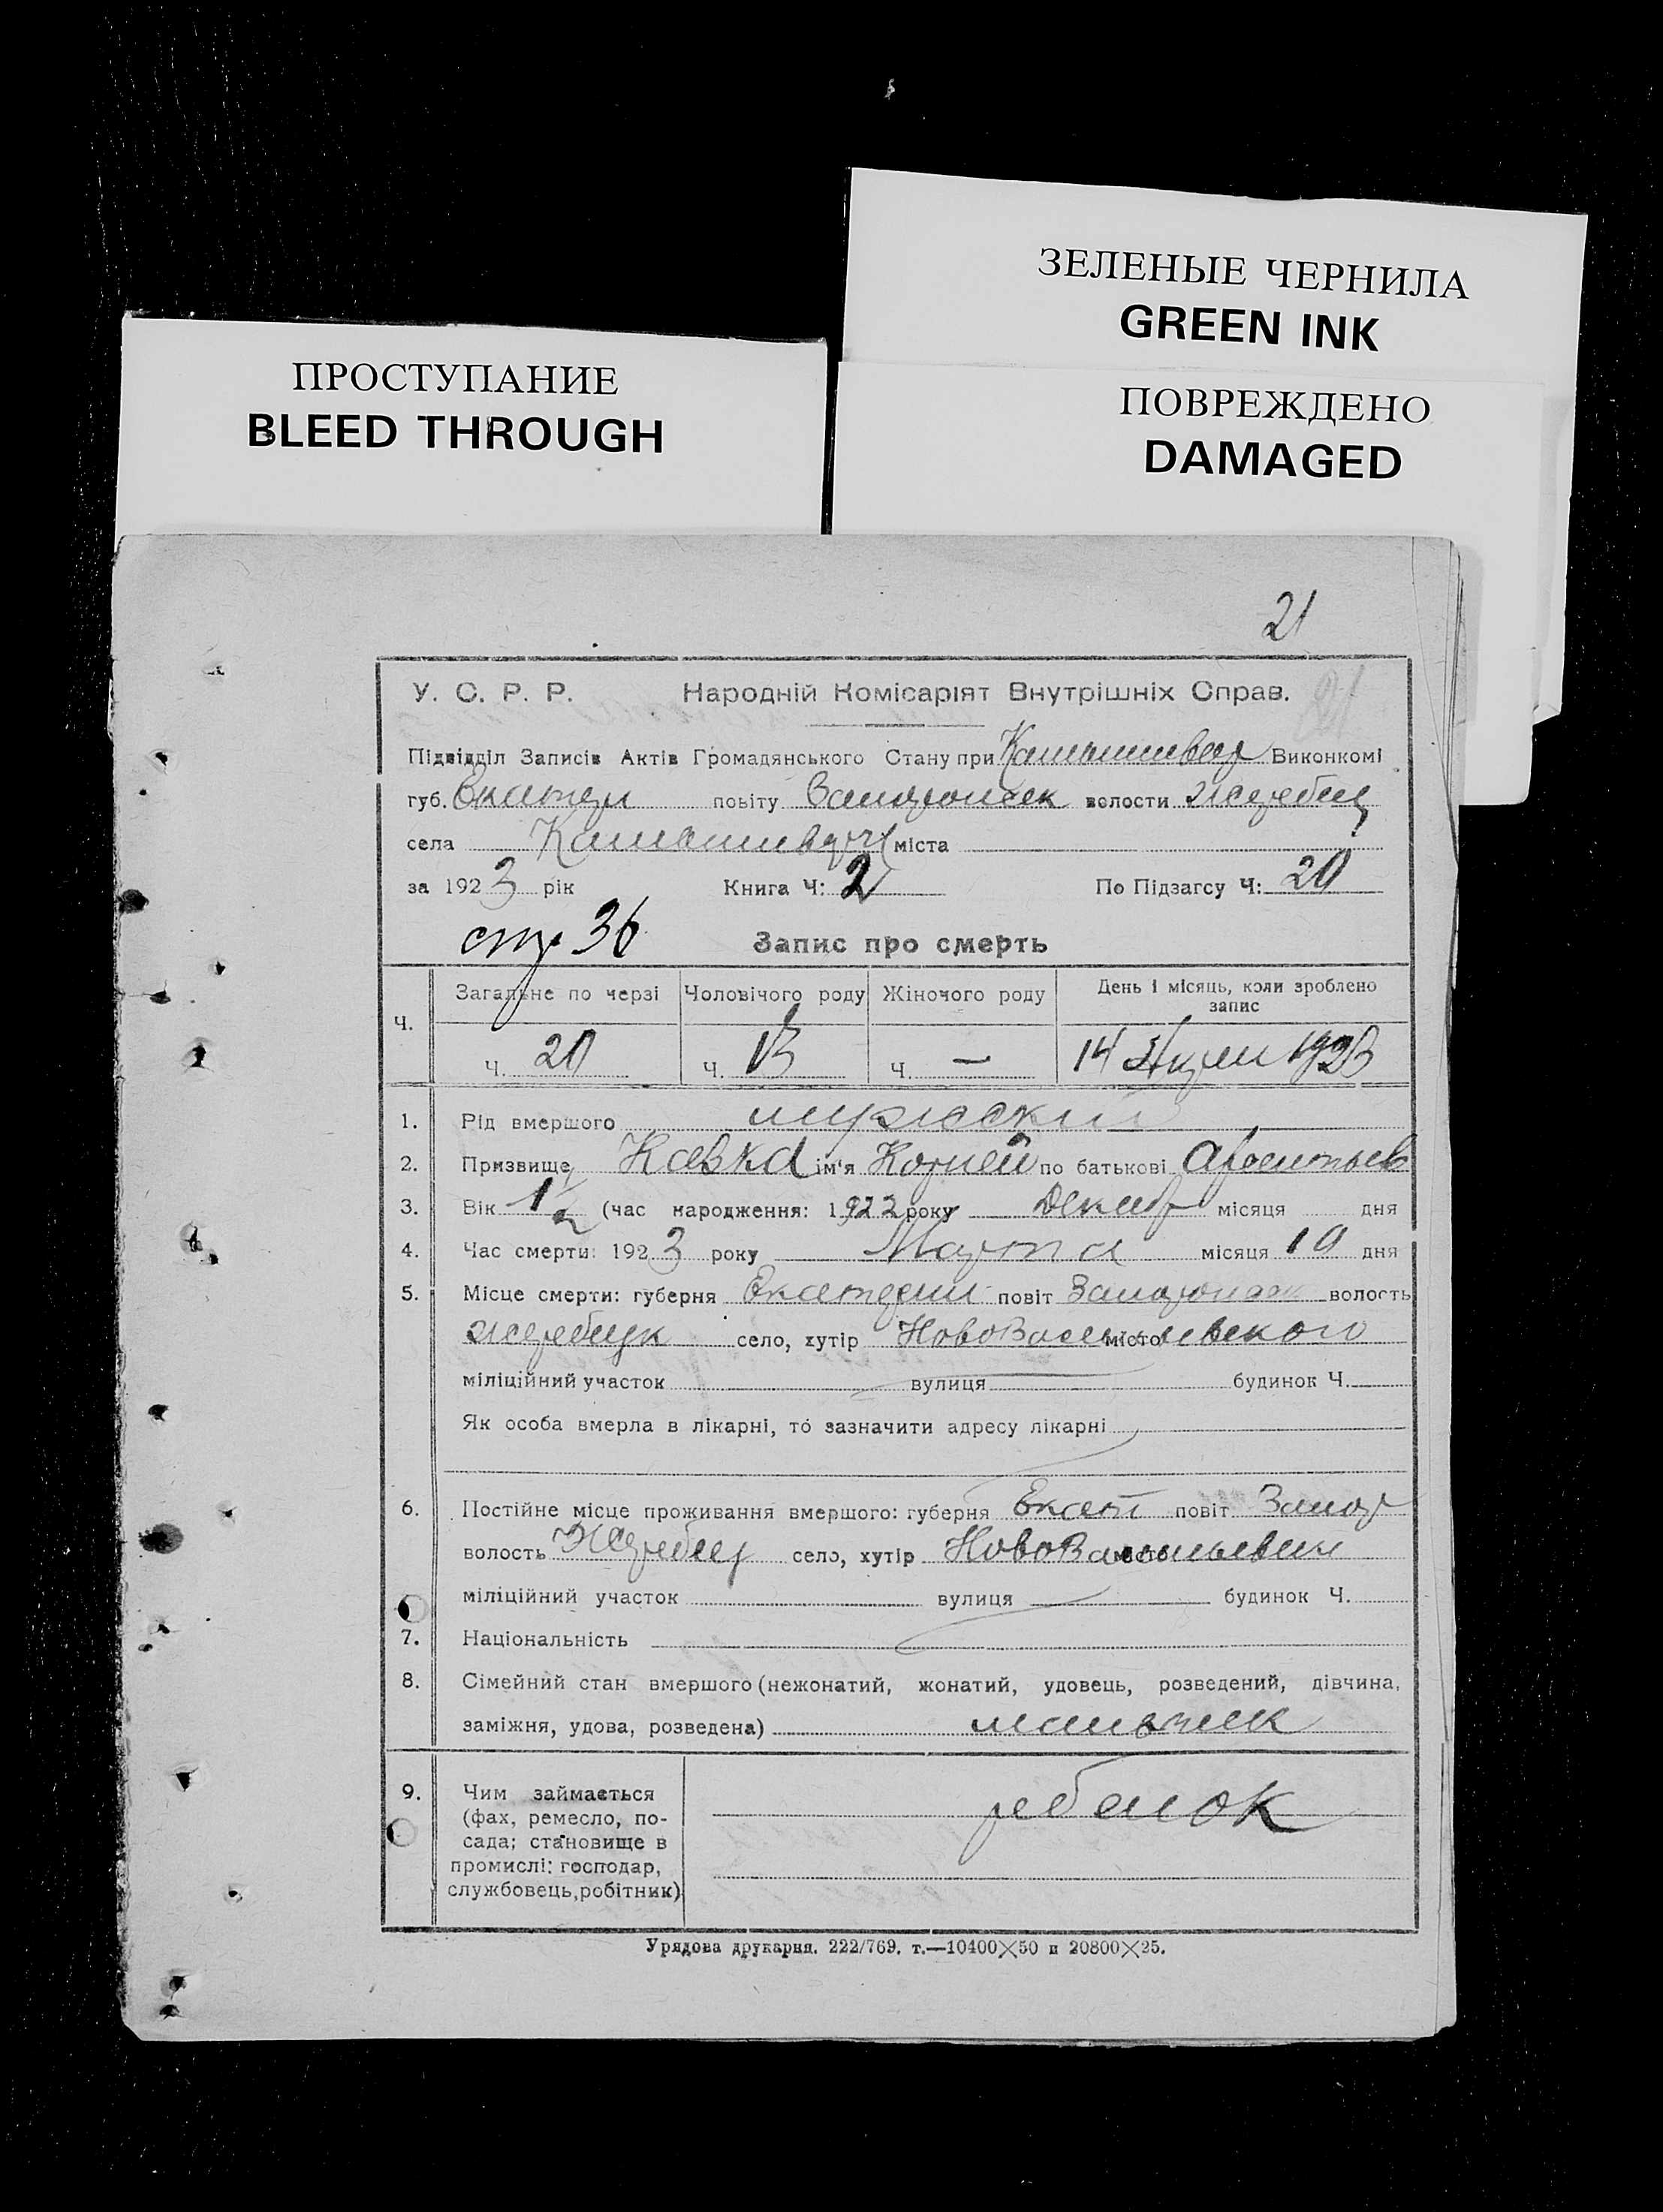 ЗЕЛЕНЫЕ ЧЕРНИЛА
GREEN INK
ПРОСТУПАНИЕ
BLEED THROUGH
ПОВРЕЖДЕНО
DAMAGED
21
У. С. Р. Р. Народній Комісаріят Внутрішніх Справ.
Підвідділ Записів Актів Громадянського Стану при Виконкомі
губ. Екатер повіту Запорожск волости Жеребец
села міста
за 1923 рік Книга Ч: 2 По Підзагсу Ч: 20
стр 36 Запис про смерть
Ч. Загальне по черзі Чоловічого роду Жіночого роду День і місяць, коли зроблено запис
Ч. 20 Ч. 13 Ч. — 14 1923
1. Рід вмершого мужской
2. Призвище Кавка ім'я Корней по батькові
3. Вік 1/2 (час народження: 1922 року Декабр місяця дня
4. Час смерти: 1923 року Марта місяця 10 дня
5. Місце смерти: губерня Екатерин повіт Запорожск волость
Жеребецк село, хутір НовоВасильевского місто
міліційний участок вулиця будинок Ч.
Як особа вмерла в лікарні, то зазначити адресу лікарні
6. Постійне місце проживання вмершого: губерня Екат повіт Запор
волость Жеребец село, хутір місто
міліційний участок вулиця будинок Ч.
7. Національність
8. Сімейний стан вмершого (нежонатий, жонатий, удовець, розведений, дівчина,
заміжня, удова, розведена) мальчик
9. Чим займається ребенок
(фах, ремесло, по-
сада; становище в
промислі: господар,
службовець, робітник)
Урядова друкарня. 222/769. т.—10400×50 и 20800×25.